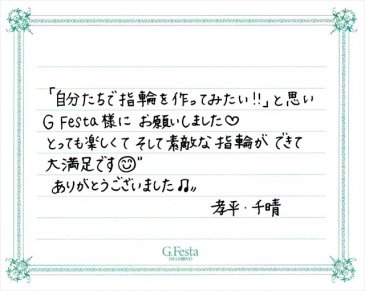 「自分たちで指輪を作ってみたい!!」と思い
G Festa様に お願いしました♡
とっても楽しくて そして素敵な指輪が できて
大満足です😊"
ありがとうございました♫〃
孝平・千晴
G.Festa
DIAMOND